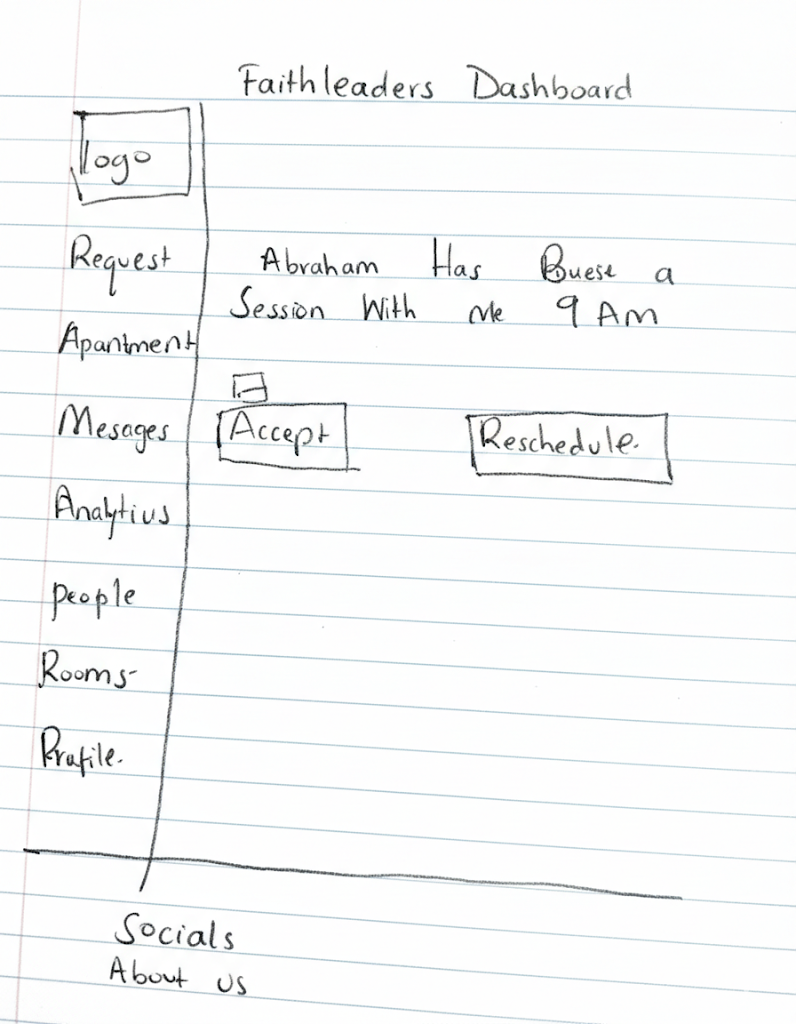 Faithleaders Dashboard
logo
Request
Apantment
Mesages
Analytius
people
Rooms
Profile.
Abraham Has Buese a
Session With Me 9 AM
Accept
Reschedule.
Socials
About us